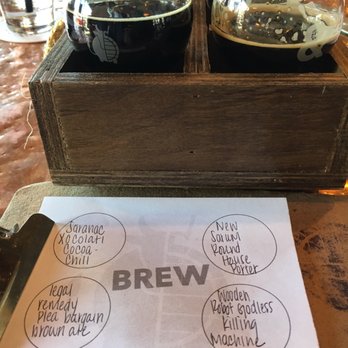 Saranac
Xocolatl
Cocoa-
Chili
New
Sarum
Round
House
Porter
BREW
legal
remedy
Plea bargain
brown ale
Wooden
Robot Godless
Killing
Machine